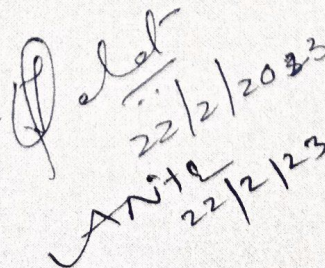 22/2/2023
Anita
22/2/23